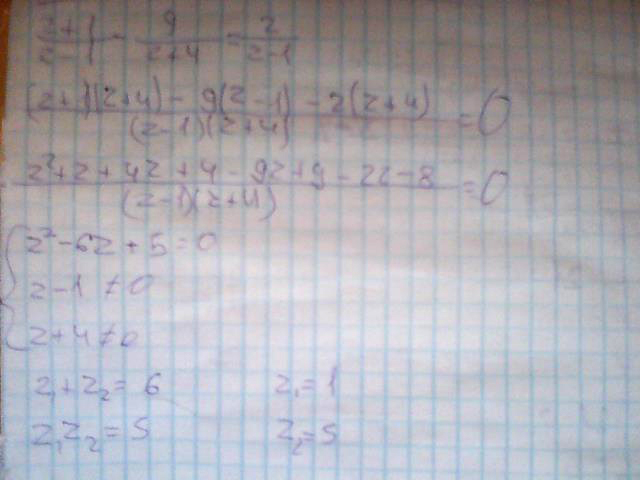 (z+1)/(z-1) - 9/(z+4) = 2/(z-1)
((z+1)(z+4) - 9(z-1) - 2(z+4))/((z-1)(z+4)) = 0
(z²+z+4z+4-9z+9-2z-8)/((z-1)(z+4)) = 0
{ z²-6z+5=0
z-1≠0
z+4≠0
z₁+z₂=6 z₁=1
z₁z₂=5 z₂=5